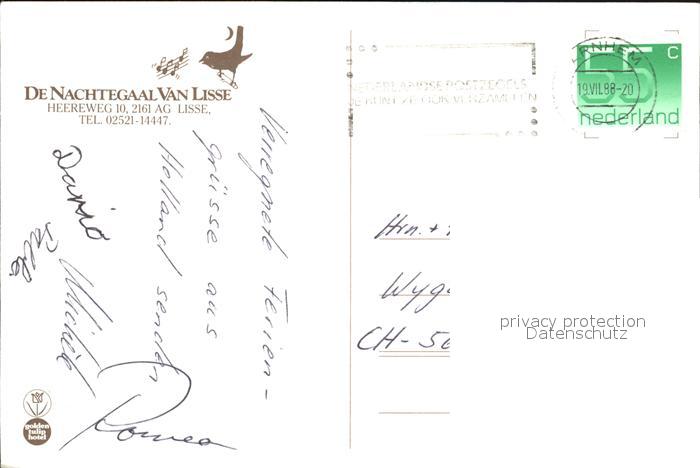 DE NACHTEGAAL VAN LISSE
HEEREWEG 10, 2161 AG LISSE,
TEL. 02521-14447.
Verregnete Ferien-
grüsse aus
Holland senden
Dario
Romeo
golden
tulip
hotel
NEDERLANDSE POSTZEGELS
KUNT OOK VERZAMELEN
ARNHEM
19.VII.88-20
55 c
nederland
Hrn. +
Wyg
CH-50
privacy protection
Datenschutz